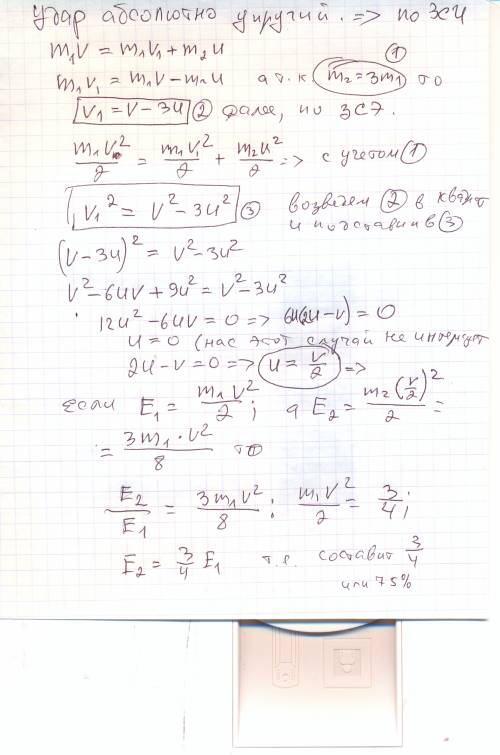 Удар абсолютно упругий. => по ЗСИ
m₁V = m₁V₁ + m₂u
m₁V₁ = m₁V - m₂u а т.к m₂ = 3m₁ ① то
V₁ = V - 3u ② далее, по ЗСЭ.
m₁V²/2 = m₁V₁²/2 + m₂u²/2 => с учетом ①
V₁² = V² - 3u² ③ возведем ② в квадрат
и подставим в ③
(V - 3u)² = V² - 3u²
V² - 6uV + 9u² = V² - 3u²
12u² - 6uV = 0 => 6u(2u - V) = 0
u = 0 (нас этот случай не интересует
2u - V = 0 => u = V/2 =>
если E₁ = m₁V²/2; а E₂ = m₂(V/2)²/2 =
= 3m₁·V²/8 то
E₂/E₁ = 3m₁V²/8 : m₁V²/2 = 3/4;
E₂ = 3/4 E₁ т.е. составит 3/4
или 75%